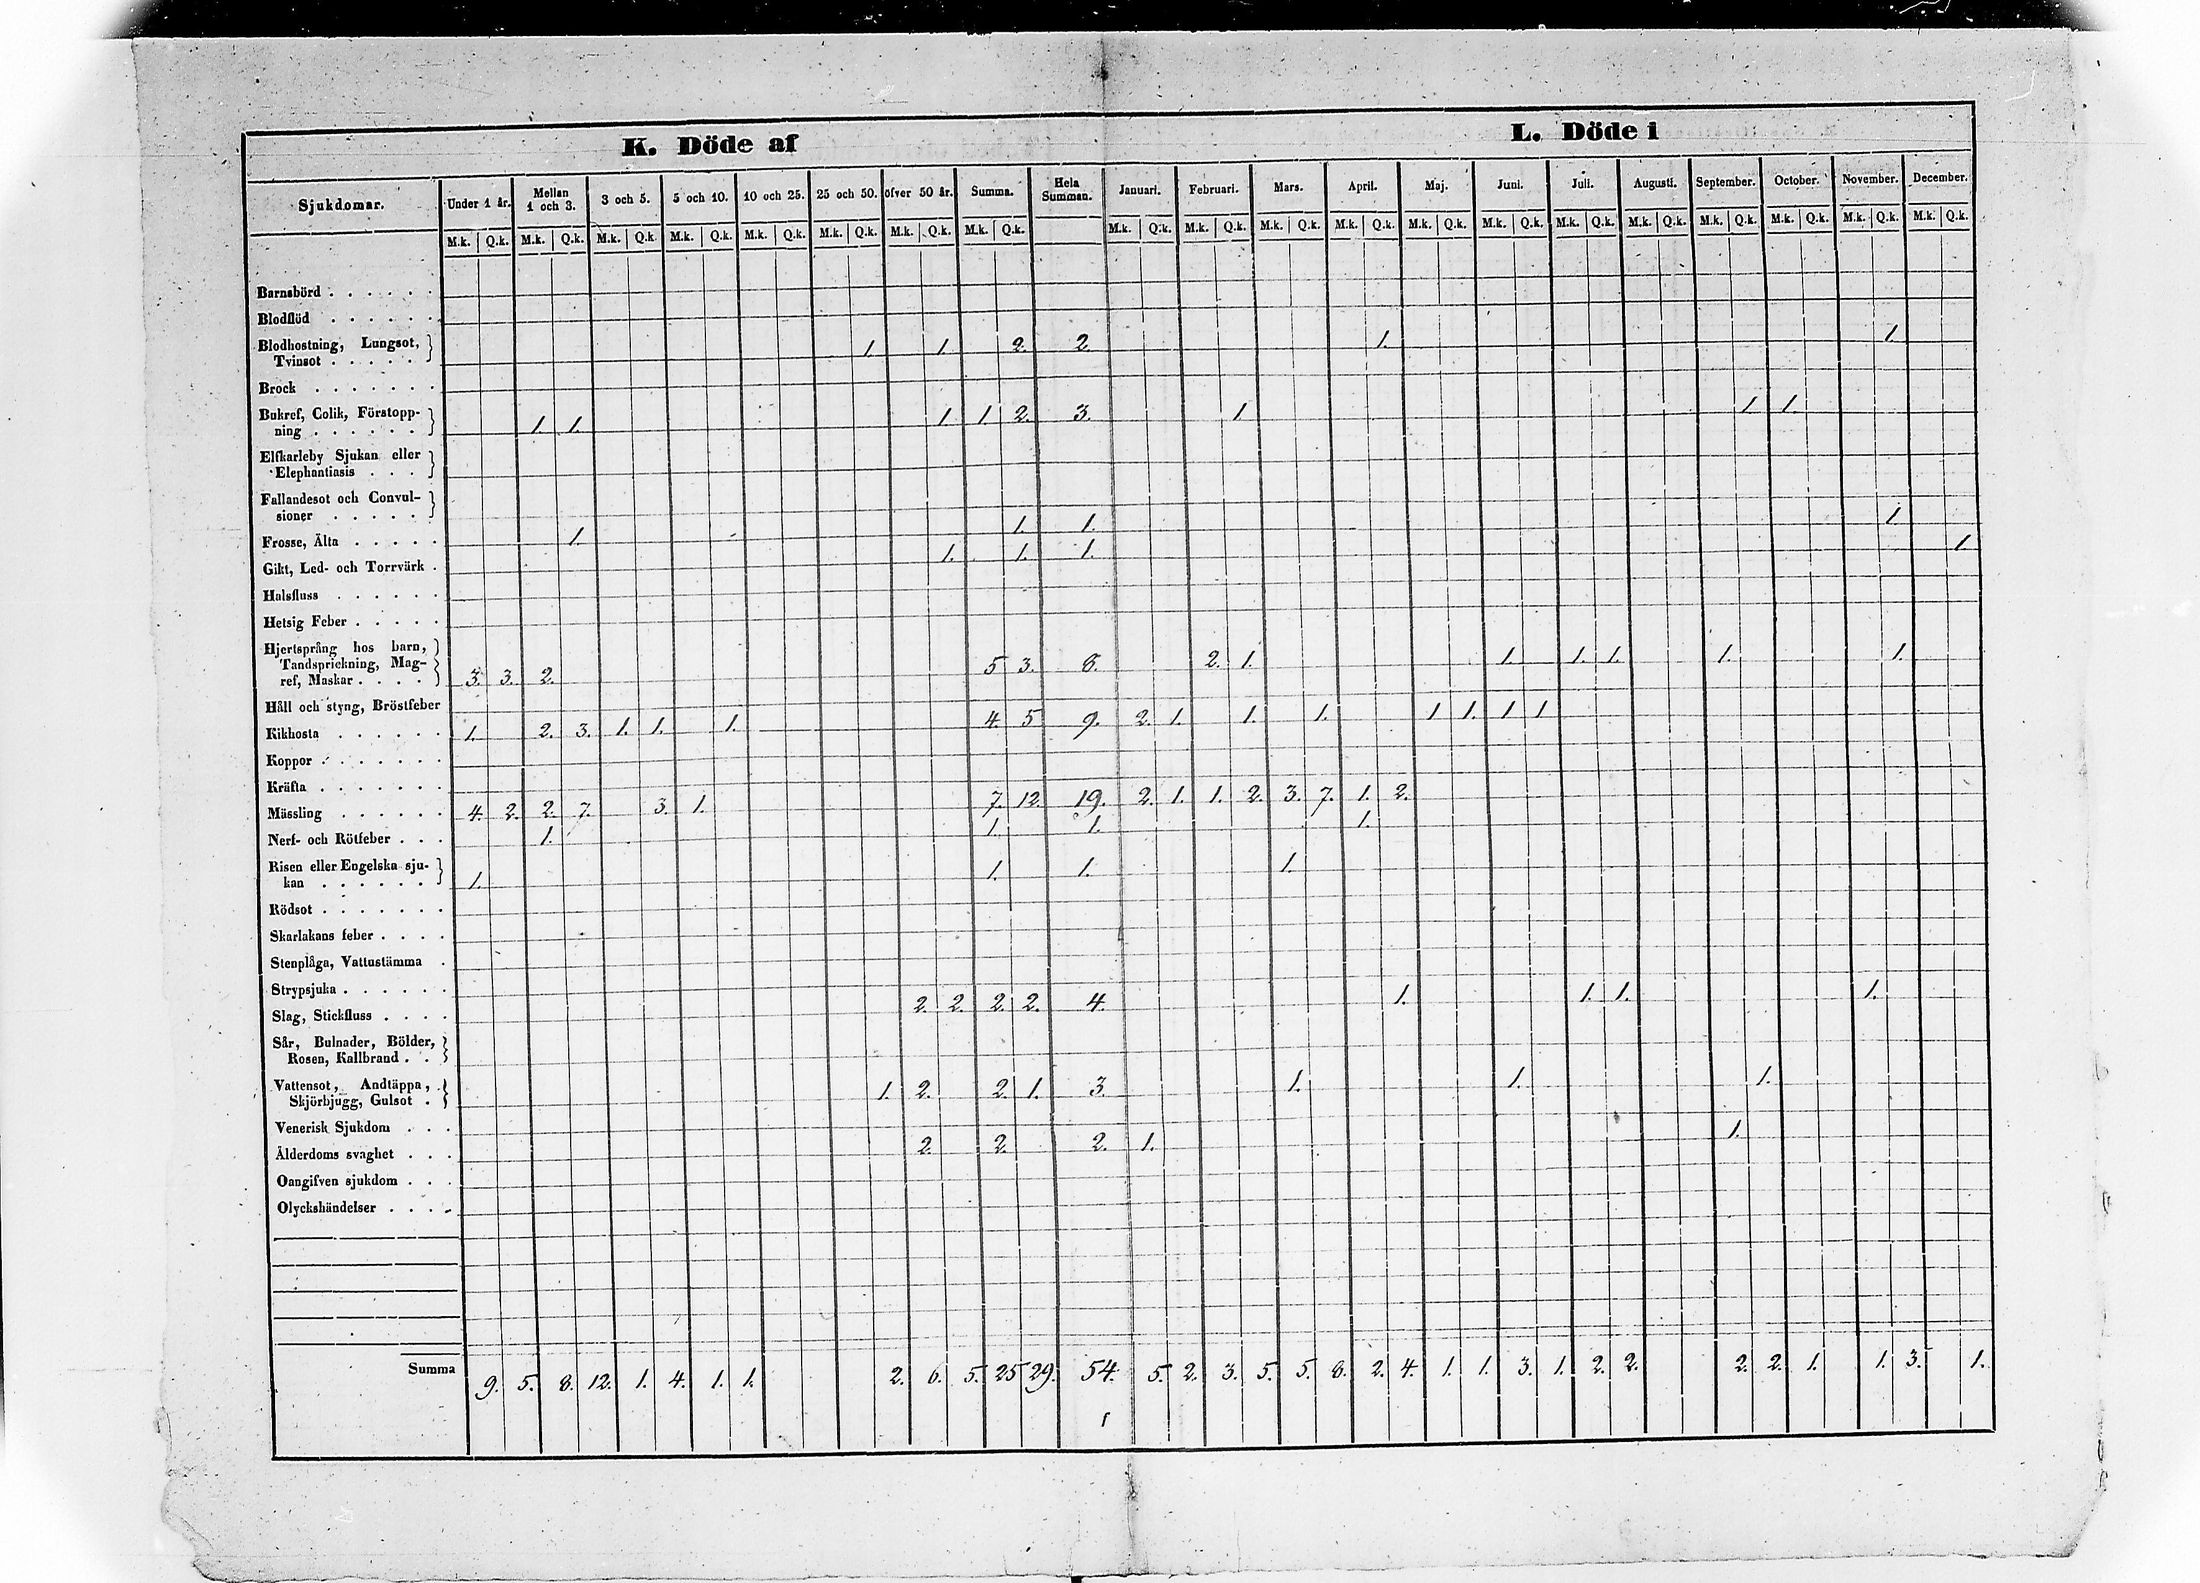 K. Döde af L. Döde i
Sjukdomar. Under 1 år. Mellan 1 och 3. 3 och 5. 5 och 10. 10 och 25. 25 och 50. öfver 50 år. Summa. Hela Summan. Januari. Februari. Mars. April. Maj. Juni. Juli. Augusti. September. October. November. December.
M.k. Q.k. M.k. Q.k. M.k. Q.k. M.k. Q.k. M.k. Q.k. M.k. Q.k. M.k. Q.k. M.k. Q.k. M.k. Q.k. M.k. Q.k. M.k. Q.k. M.k. Q.k. M.k. Q.k. M.k. Q.k. M.k. Q.k. M.k. Q.k. M.k. Q.k. M.k. Q.k. M.k. Q.k. M.k. Q.k.
Barnsbörd . . . . . .
Blodflöd . . . . . .
Blodhostning, Lungsot,
Tvinsot . . . . . 1. 1. 2. 2. 1. 1.
Brock . . . . . . .
Bukref, Colik, Förstopp-
ning . . . . . . 1. 1. 1 1 2. 3. 1. 1. 1.
Elfkarleby Sjukan eller
Elephantiasis . . .
Fallandesot och Convul-
sioner . . . . .
Frosse, Älta . . . . . 1. 1. 1. 1.
Gikt, Led- och Torrvärk . 1. 1. 1. 1.
Halsfluss . . . . . .
Hetsig Feber . . . . .
Hjertsprång hos barn,
Tandsprickning, Mag-
ref, Maskar . . . . 3. 3. 2. 5 3. 8. 2. 1. 1. 1. 1. 1. 1.
Håll och styng, Bröstfeber
Kikhosta . . . . . . 1. 2. 3. 1. 1. 1. 4. 5 9. 2. 1. 1. 1. 1 1. 1 1
Koppor . . . . . . .
Kräfta . . . . . . .
Mässling . . . . . . 4. 2. 2. 7. 3. 1. 7. 12. 19. 2. 1. 1. 2. 3. 7. 1. 2.
Nerf- och Rötfeber . . . 1. 1. 1. 1.
Risen eller Engelska sju-
kan . . . . . . 1. 1. 1. 1.
Rödsot . . . . . . .
Skarlakans feber . . . .
Stenplåga, Vattustämma .
Strypsjuka . . . . . .
Slag, Stickfluss . . . . 2. 2. 2. 2. 4. 1. 1. 1. 1.
Sår, Bulnader, Bölder,
Rosen, Kallbrand . .
Vattensot, Andtäppa,
Skjörbjugg, Gulsot . 1. 2. 2. 1. 3. 1. 1. 1.
Venerisk Sjukdom . . .
Ålderdoms svaghet . . . 2. 2. 2. 1. 1.
Oangifven sjukdom . . .
Olyckshändelser . . . .
Summa 9. 5. 8. 12. 1. 4. 1. 1. 2. 6. 5. 25 29. 54. 5. 2. 3. 5. 5. 8. 2. 4. 1. 1. 3. 1. 2. 2. 2. 2. 1. 1. 3. 1.